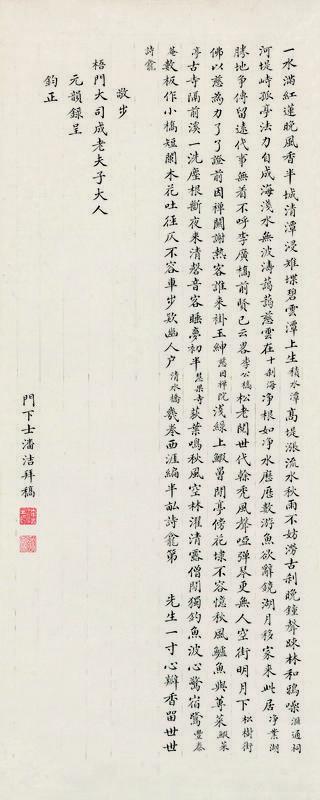 一水滿紅蓮晚風香半城清潭浸雉堞碧雲潭上生積水潭高堤漲流水秋雨不妨澇古刹晚鍾聲疎林和鴉噪滙通祠
河堤峙孤亭法力自成海淺水無波濤藹藹慈雲在十刹海淨根如淨水歷歷數游魚欲辭鏡湖月移家来此居淨業湖
勝地爭傳留遠代事無着不呼李廣橋前賢已云畧李公橋松老閱世代幹禿風聲啞彈琴更無人空街明月下松樹街
佛以慈為力了了證前因禪關謝熱客誰来掛玉紳慈因禪院淺綠上蝦罾閒亭傍花埭不容憶秋風鱸魚與蓴菜蝦菜
亭古寺隔前溪一洗塵根斷夜来清磬音客睡夢初半慧果寺荻葉鳴秋風空林濯清露僧閒獨釣魚波心驚宿鷺豐泰
菴數板作小橋短闌木花吐徑仄不容車步欵幽人户清水橋幾拳西涯編半畝詩龕第 先生一寸心瓣香留世世
詩龕
散步
梧門大司成老夫子大人
元韻録呈
鈞正
門下士潘洁拜稿